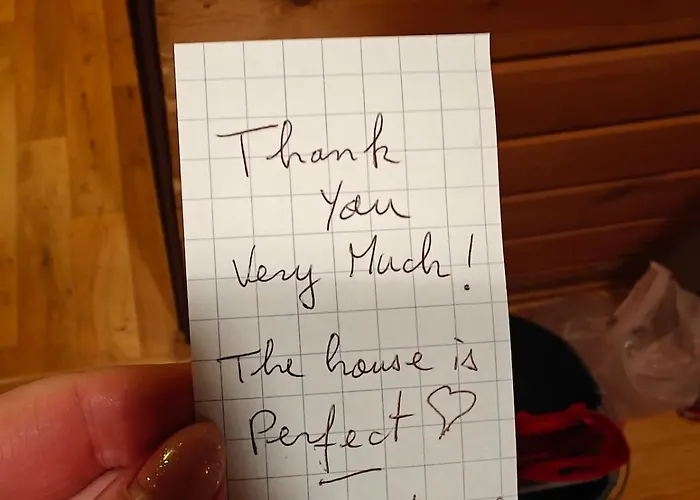 Thank
You
Very Much!
The house is
Perfect ♡